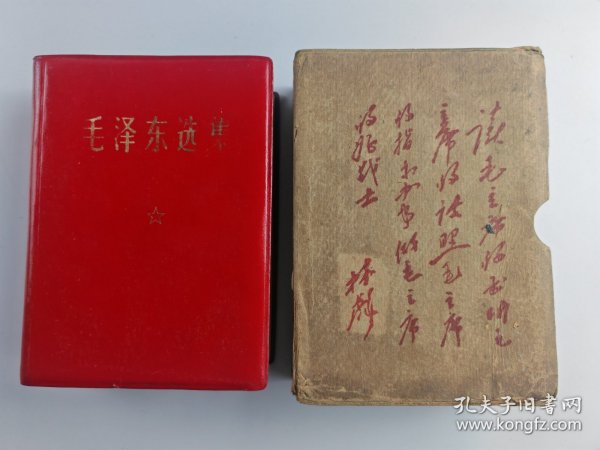 毛泽东选集
读毛主席的书听毛
主席的话照毛主席
的指示办事做毛主席
的好战士
林彪
孔夫子旧书网
www.kongfz.com